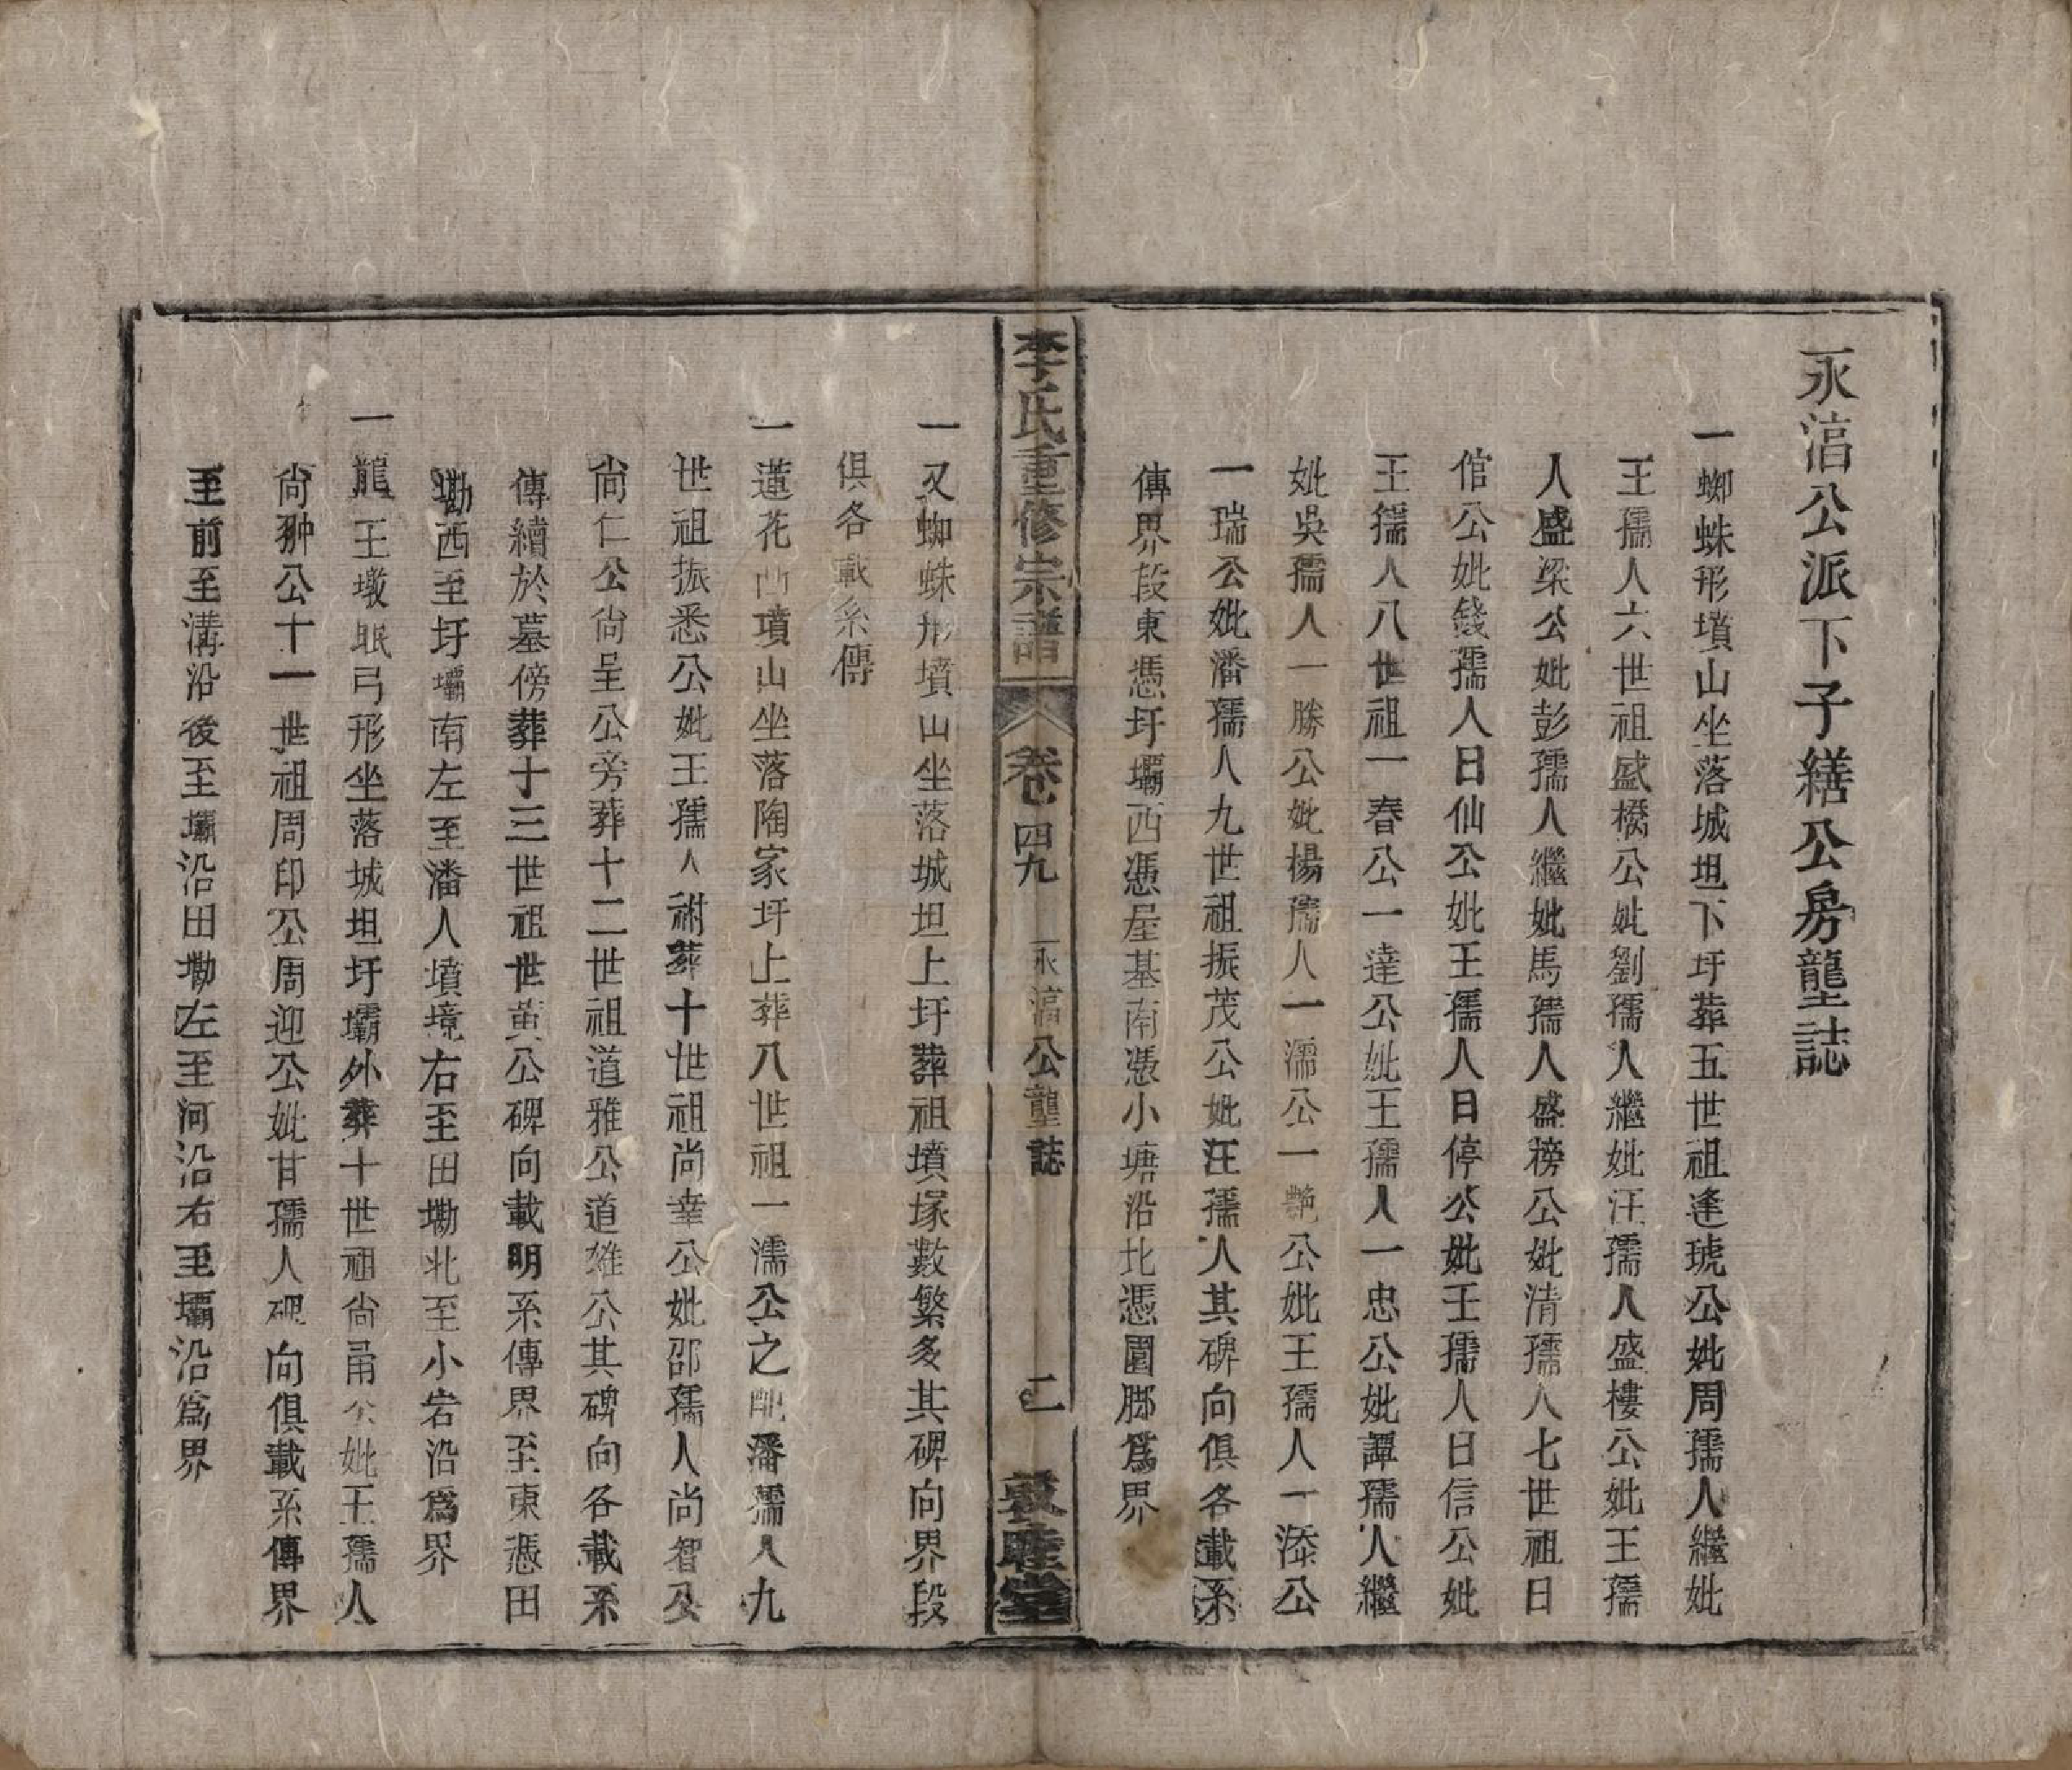 永㴖公派下子繕公房壟誌
一蜘蛛形墳山坐落城坦下圩葬五世祖逢琥公妣周孺人繼妣
王孺人六世祖盛橋公妣劉孺人繼妣汪孺人盛樓公妣王孺
人盛梁公妣彭孺人繼妣馬孺人盛榜公妣清孺人七世祖日
倌公妣錢孺人日仙公妣王孺人日停公妣王孺人日信公妣
王孺人八世祖一春公一達公妣王孺人一忠公妣譚孺人繼
妣吳孺人一勝公妣楊孺人一濡公一艷公妣王孺人一添公
一瑞公妣潘孺人九世祖振茂公妣汪孺人其碑向俱各載系
傳界段東憑圩壩西憑屋基南憑小塘沿北憑園腳爲界
李氏重修宗譜 卷四九 永㴖公壟誌 二 敦睦堂
一又蜘蛛形墳山坐落城坦上圩葬祖墳塚數繁多其碑向界段
俱各載系傳
一蓮花凸墳山坐落陶家圩上葬八世祖一濡公之配潘孺人九
世祖振悉公妣王孺人祔葬十世祖尚幸公妣邵孺人尚智公
尚仁公尚呈公旁葬十二世祖道雅公道雄公其碑向各載系
傳續於墓傍葬十三世祖世黃公碑向載明系傳界至東憑田
塝西至圩壩南左至潘人墳境右至田塝北至小岩沿爲界
一龍王墩眠弓形坐落城坦圩壩外葬十世祖尚甬公妣王孺人
尚翀公十一世祖周印公周迎公妣甘孺人碑向俱載系傳界
至前至溝沿後至壩沿田塝左至河沿右至壩沿爲界